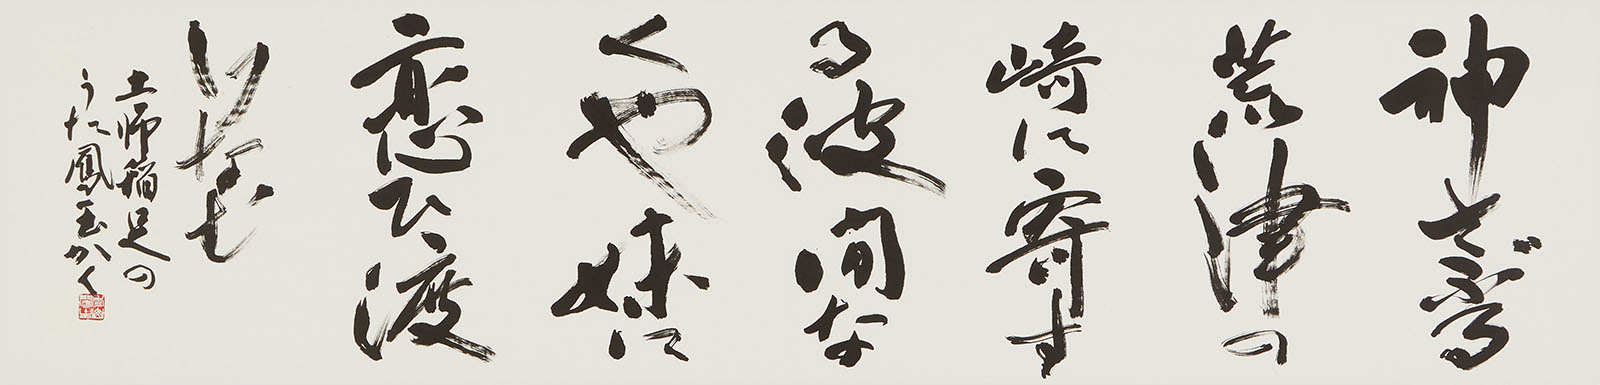 神さぶる
荒津の
崎に寄す
る波間な
くや妹に
恋ひ渡
りなむ
土師稲足の
うた鳳玉かく